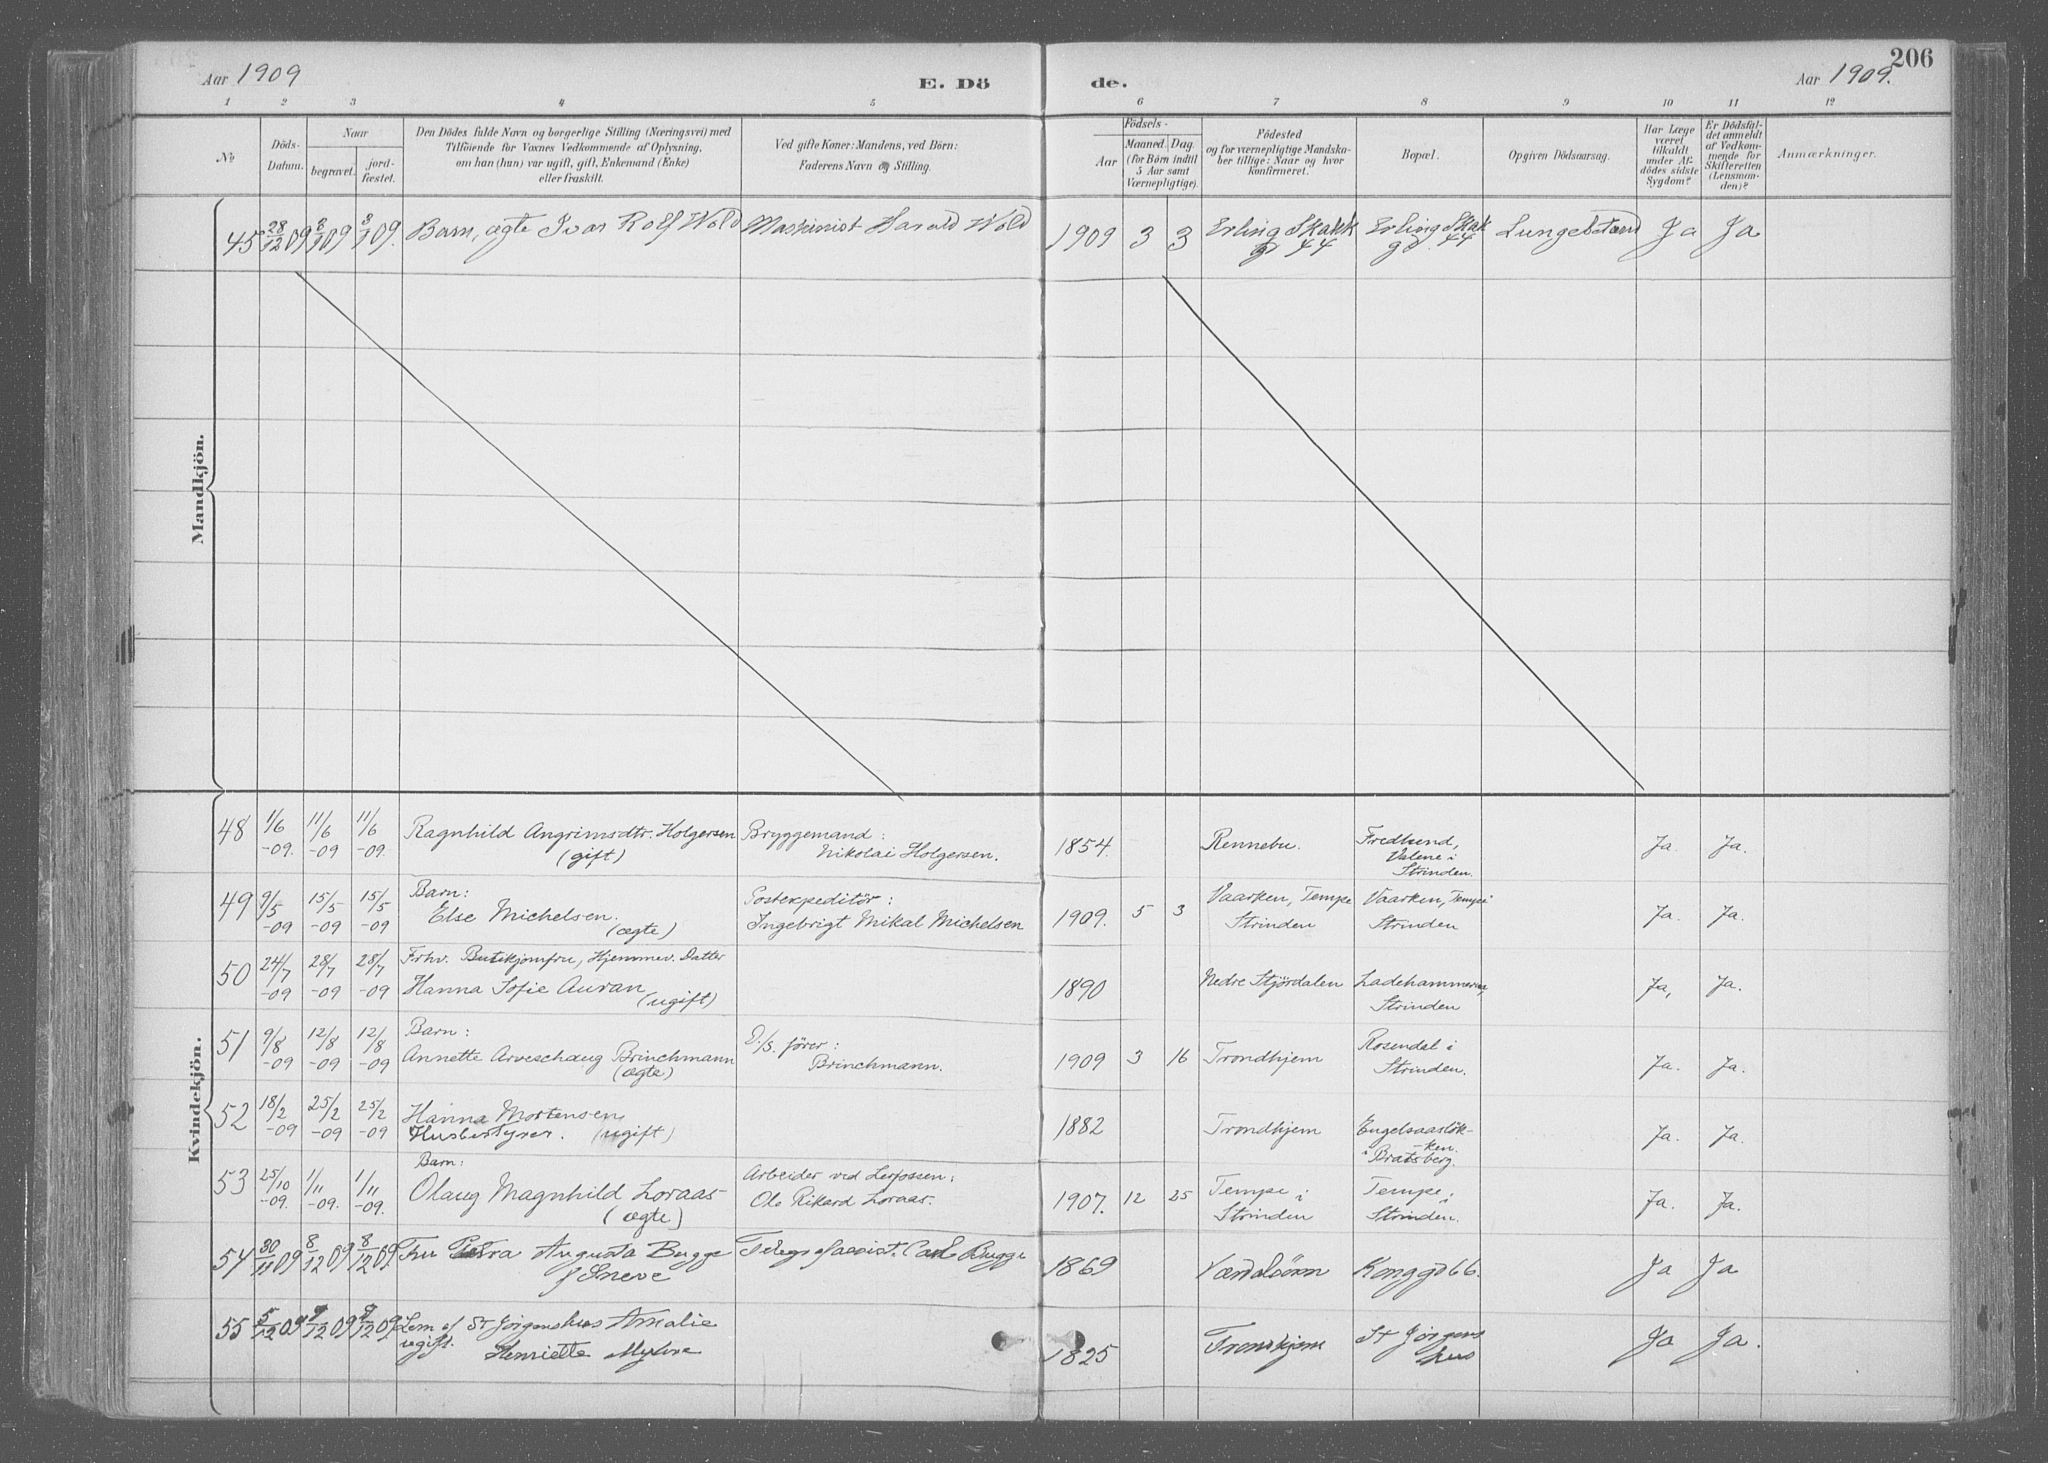 Aar 1909
E. Dö
de.
Aar 1909.
206
1 2 3 4 5 6 7 8 9 10 11 12
№
Döds-
Datum.
Naar
begravet.
jord-
fæstet.
Den Dödes fulde Navn og borgerlige Stilling (Næringsvei) med
Tilföiende for Voxnes Vedkommende af Oplysning,
om han (hun) var ugift, gift, Enkemand (Enke)
eller fraskilt.
Ved gifte Koner: Mandens, ved Börn:
Faderens Navn og Stilling.
Födsels-
Aar
Maaned. Dag.
(for Börn indtil
5 Aar samt
Værnepligtige).
Födested
og for værnepligtige Mandska-
ber tillige: Naar og hvor
konfirmeret.
Bopæl.
Opgiven Dödsaarsag.
Har Læge
været
tilkaldt
under Af-
dödes sidste
Sygdom?
Er Dödsfal-
det anmeldt
af Vedkom-
mende for
Skifteretten
(Lensman-
den)?
Anmærkninger.
Mandkjön.
45 28/12 09 8/1 09 8/1 09. Barn, ægte Ivar Rolf Wold Maskinist Harald Wold 1909 3 3 Erling Skakk Erling Skak Ja Ja
gd 44 gd. 44
Kvindekjön.
48 1/6 11/6 11/6 Ragnhild Angrimsdtr. Holgersen Bryggemand: 1854. Rennebu. Fredlund, Ja. Ja.
-09. -09 -09. (gift) Nikolai Holgersen. Valene i
Strinden.
49 9/5 15/5 15/5 Barn: Postexpeditör: Vaarken, Tempe Vaarken, Tempe i
-09 -09 -09 Else Michelsen. Ingebrigt Mikal Michelsen 1909. 5 3 Strinden Strinden Ja. Ja.
(ægte)
50 24/7 28/7 28/7 Frhv. Butikjomfru, Hjemmev. Datter
-09 -09 -09 Hanna Sofie Auran 1890 Nedre Stjördalen Ladehammeren, Ja, Ja.
(ugift) Strinden
51 9/8 12/8 12/8 Barn: D/S. förer: Rosendal i
-09 -09 -09 Annette Arveschoug Brinchmann Brinchmann. 1909 3 16 Trondhjem Strinden. Ja. Ja.
(ægte)
52 18/2 25/2 25/2 Hanna Mortensen 1882 Trondhjem Ja. Ja.
-09 -09 -09 Husbestyrer. (ugift) i Bratsberg.
53 25/10 1/11 1/11 Barn: Arbeider ved Lerfossen:
-09. -09. -09. Olaug Magnhild Loraas- Ole Rikard Loraas. 1907. 12 25 Tempe i Tempe i Ja. Ja.
(ægte) Strinden Strinden.
54 30/11 09 8/12 09 8/12 09 Fru Petra Augusta Bugge Telegrafassist. Carl Bugge 1869 Værdalsören Konggd 66. Ja Ja
f Sneve
55 5/12 09 9/12 09 8/12 09 Lem af St Jörgenshus Amalie 1825 Trondhjem St Jörgens Ja Ja.
ugift. Henriette hus